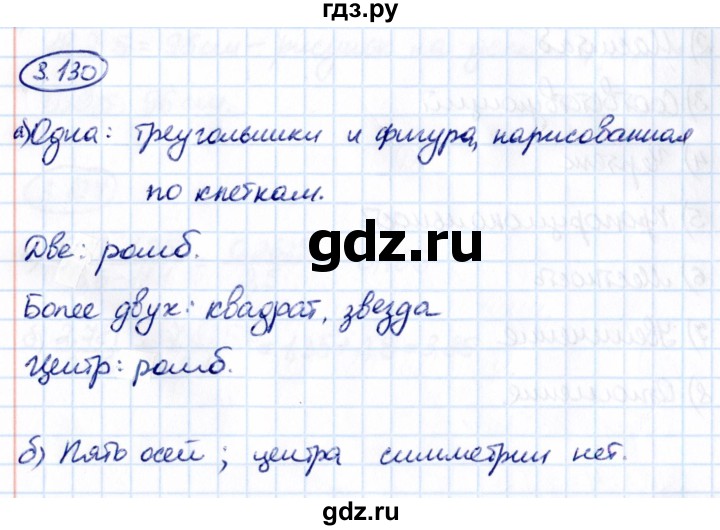 гдз.ру
3.130
а) Одна: треугольники и фигура, нарисованная
по клеткам.
gdz.ru
Две: ромб.
Более двух: квадрат, звезда
Центр: ромб.
б) Пять осей; центра симметрии нет.